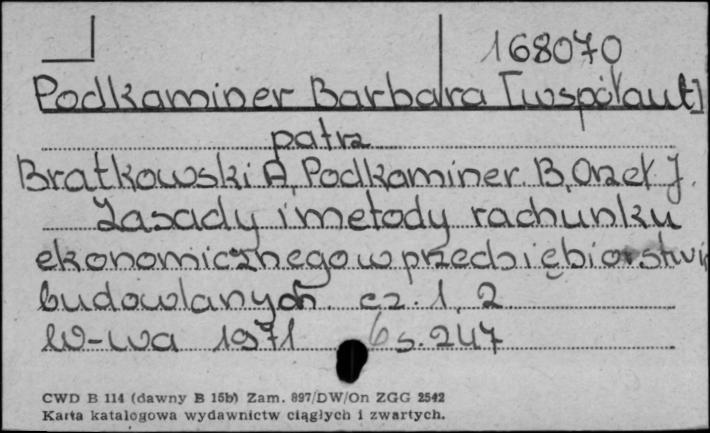 168070
Podkaminer Barbara [współaut]
patrz
Bratkowski A, Podkaminer B, Orzeł J.
Zasady i metody rachunku
ekonomicznego w przedsiębiorstwi
budowlanych cz. 1, 2
W-wa 1971 s. 247
CWD B 114 (dawny B 15b) Zam. 897/DW/On ZGG 2542
Karta katalogowa wydawnictw ciągłych i zwartych.